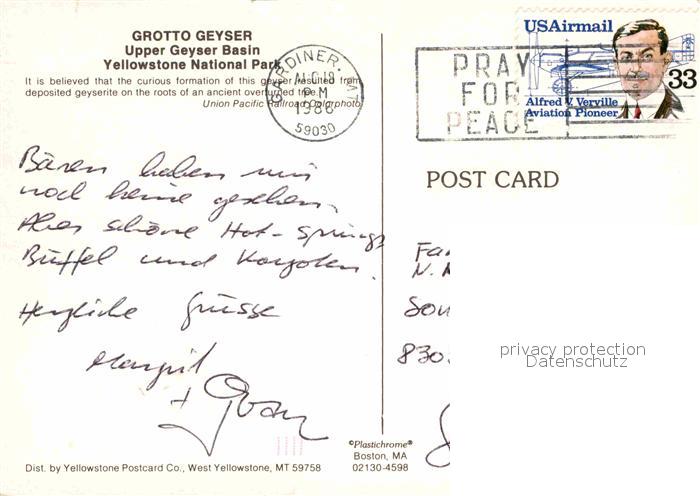 GROTTO GEYSER
Upper Geyser Basin
Yellowstone National Park
It is believed that the curious formation of this geyser resulted from
deposited geyserite on the roots of an ancient overturned tree.
Union Pacific Railroad Colorphoto
GARDINER, MT
AUG 18
PM
1986
59030
PRAY
FOR
PEACE
USAirmail
33
Alfred V. Verville
Aviation Pioneer
POST CARD
Bären haben wir
noch keine gesehen.
Aber schöne Hot-Springs
Büffel und Koyoten.
Herzliche Grüsse
Margrit
+ Ivan
Fa
N.
830
privacy protection
Datenschutz
©Plastichrome®
Boston, MA
02130-4598
Dist. by Yellowstone Postcard Co., West Yellowstone, MT 59758